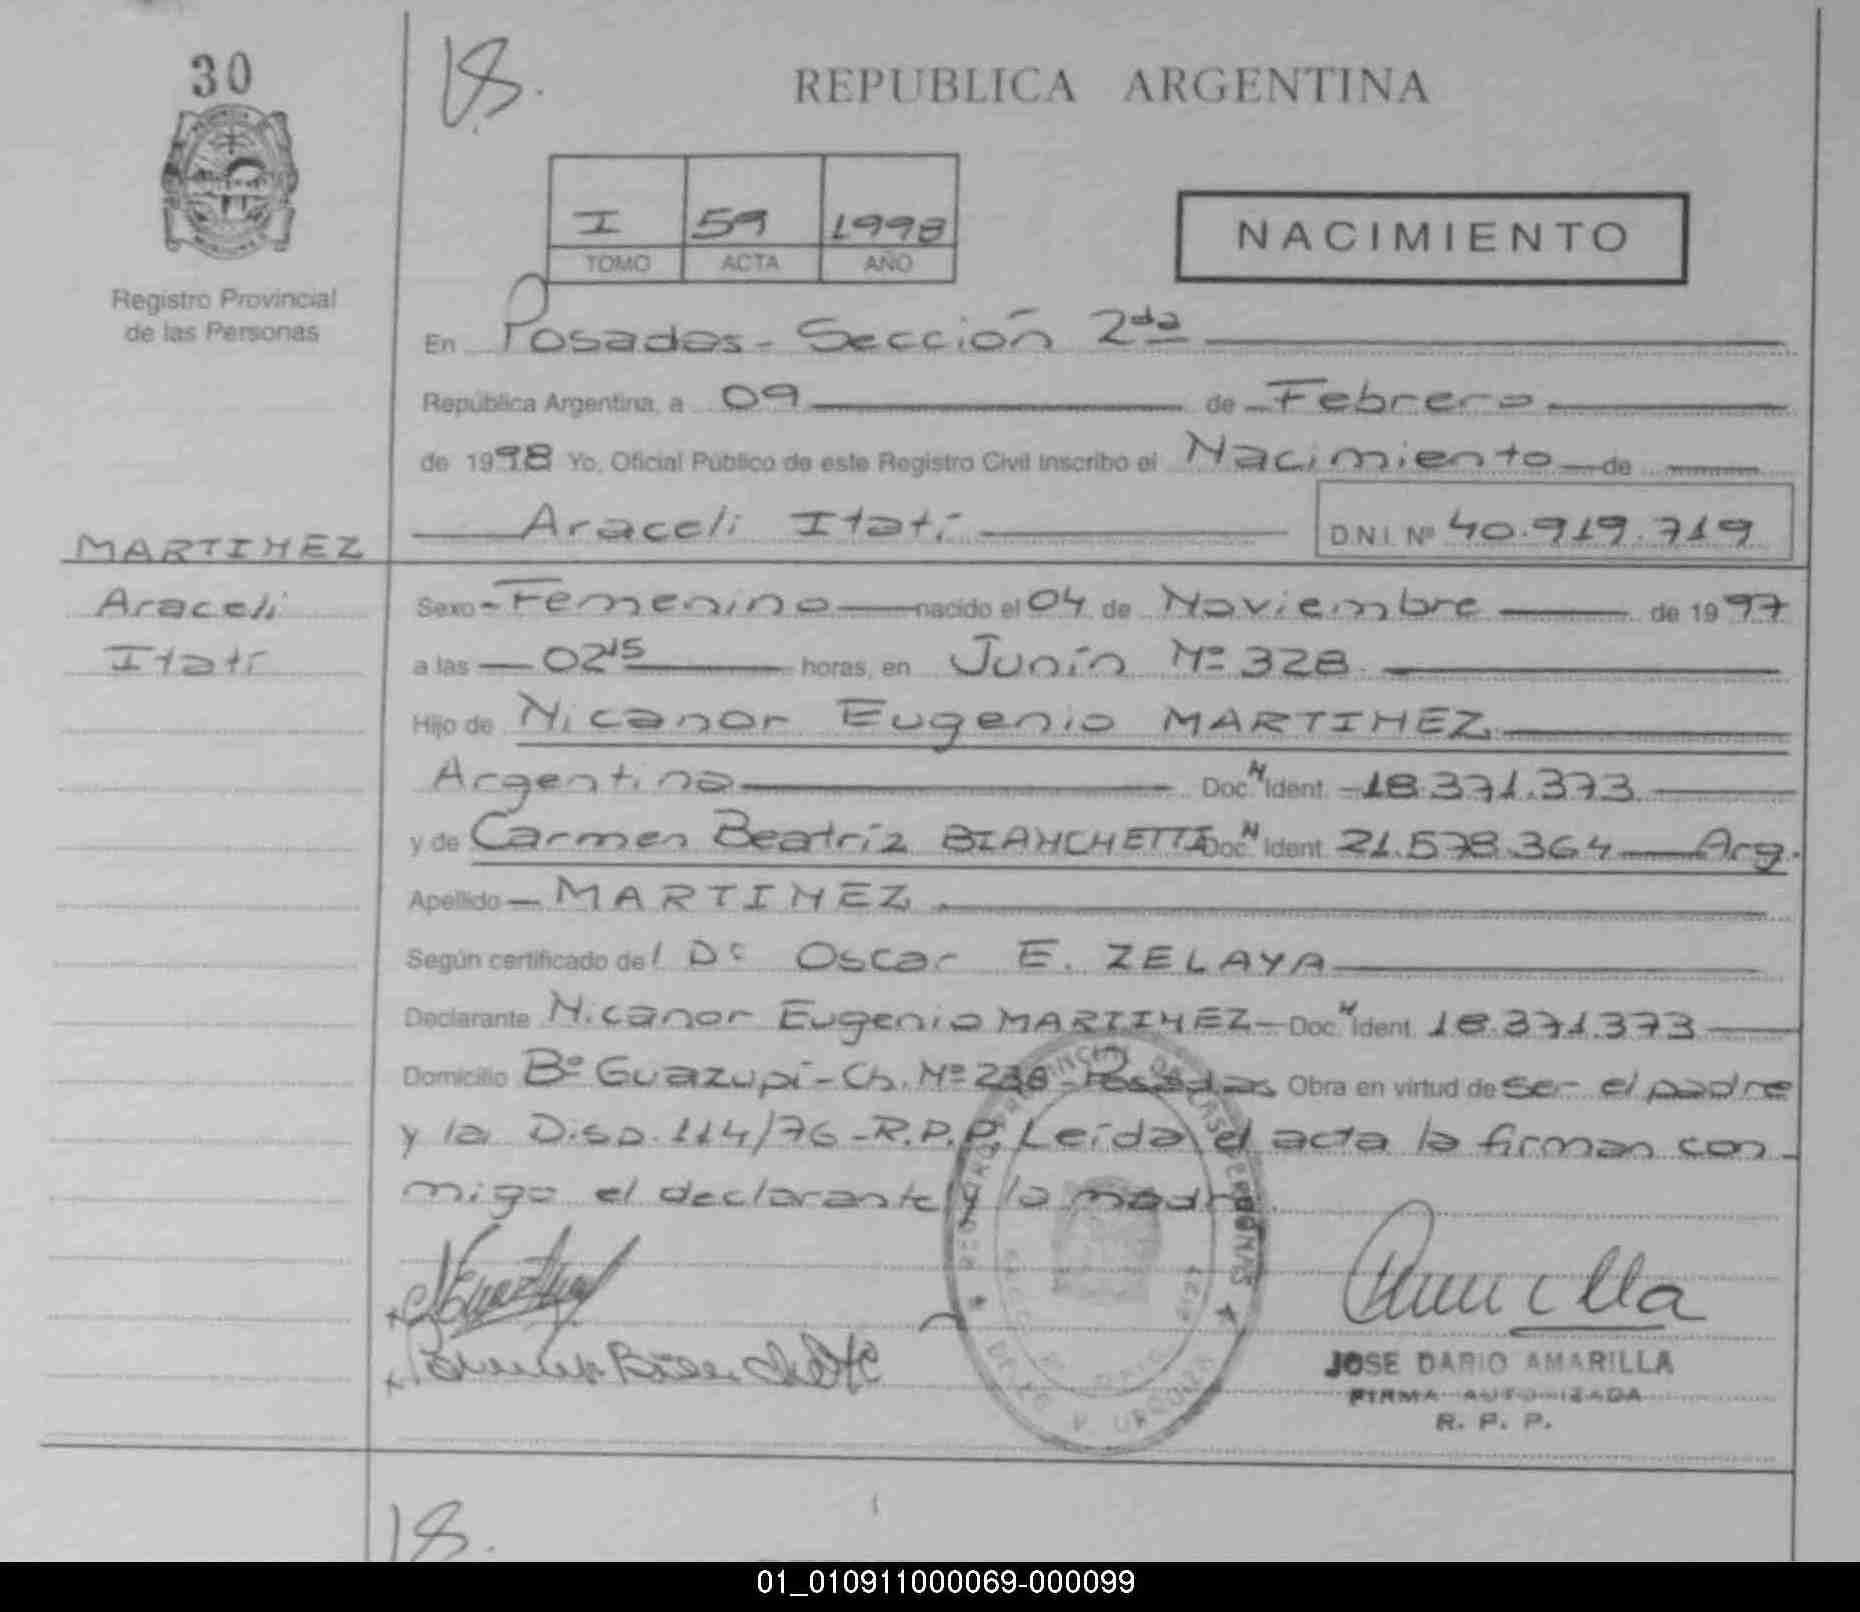 30
18.
REPUBLICA ARGENTINA
I 59 1998
TOMO ACTA AÑO
NACIMIENTO
Registro Provincial
de las Personas
En Posadas - Sección 2da
República Argentina, a 09 de Febrero
de 1998 Yo, Oficial Público de este Registro Civil Inscribo el Nacimiento de
Araceli Itatí D.N.I. Nº 40.919.719
MARTINEZ
Araceli
Itatí
Sexo Femenino nacido el 04 de Noviembre de 1997
a las 02 15 horas, en Junín Nº 328
Hijo de Nicanor Eugenio MARTINEZ
Argentina Doc. N Ident. 18.371.373
y de Carmen Beatriz BIANCHETTI Doc. N Ident. 21.578.364 Arg.
Apellido MARTINEZ
Según certificado del Dr Oscar E. ZELAYA
Declarante Nicanor Eugenio MARTINEZ Doc. N Ident. 18.371.373
Domicilio Bº Guazupí - Ch. Nº Posadas Obra en virtud de ser el padre
y la Disp. 114/76 - R.P.P. Leída el acta la firman con
migo el declarante y la madre.
JOSE DARIO AMARILLA
FIRMA AUTORIZADA
R. P. P.
18.
01_010911000069-000099